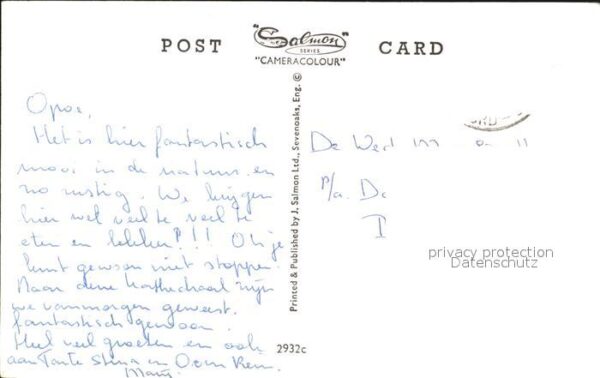 POST CARD
"Salmon"
SERIES
"CAMERACOLOUR"
Printed & Published by J. Salmon Ltd., Sevenoaks, Eng. ©
Opoe,
Het is hier fantastisch
mooi in de natuur en
zo rustig. We krijgen
hier wel veel te veel te
eten en lekker!!! Oh je
kunt gewoon niet stoppen.
Naar deze kathedraal zijn
we vanmorgen geweest.
fantastisch gewoon.
Heel veel groeten en ook
aan Tante Stina en Oom Rem.
De Wed
p/a. Dc
I
privacy protection
Datenschutz
2932c